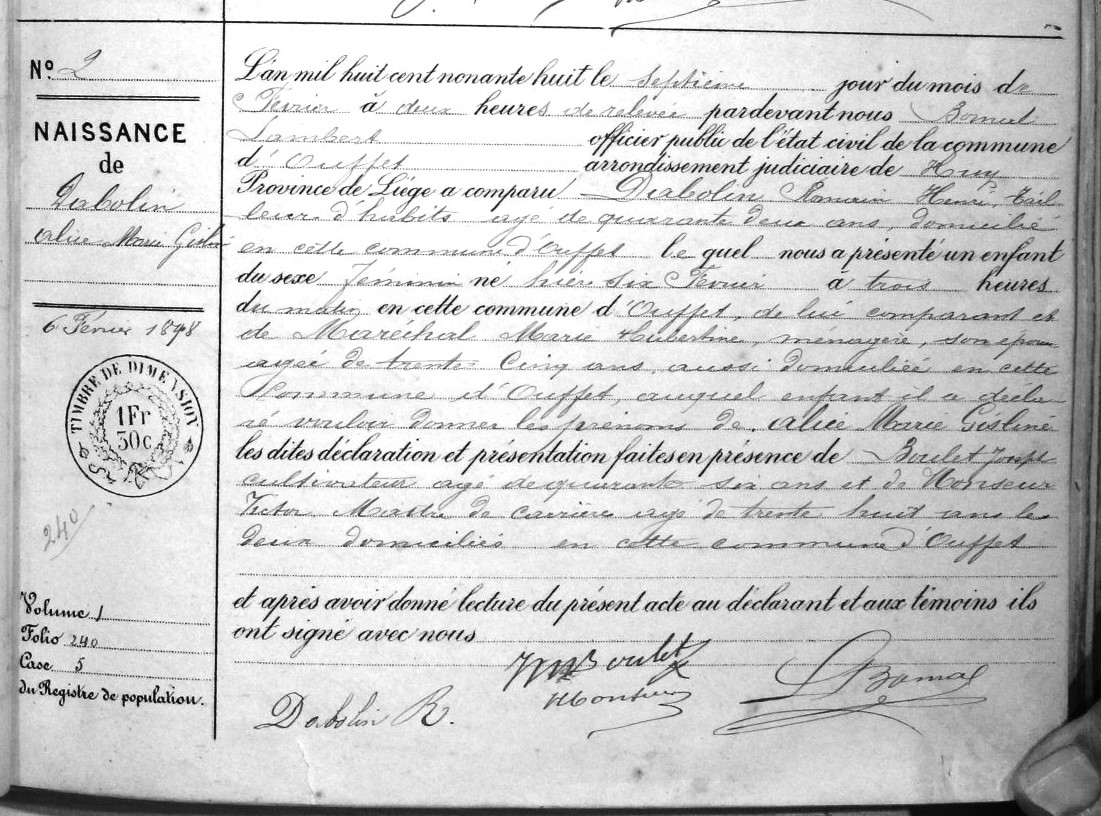 Nº 2
NAISSANCE
de
Dabolin
Alice Marie Gisline
6 Février 1898
TIMBRE DE DIMENSION
1Fr
30c
240
Volume 1
Folio 240
Case 5
du Registre de population.
L'an mil huit cent nonante huit le septième jour du mois de
Février à deux heures de relevée pardevant nous Bomal
Lambert officier public de l'état civil de la commune
d'Ouffet arrondissement judiciaire de Huy
Province de Liége a comparu Dabolin Romain Henri, tail
leur d'habits agé de quarante deux ans, domicilié
en cette commune d'Ouffet lequel nous a présenté un enfant
du sexe féminin né hier six Février à trois heures
du matin en cette commune d'Ouffet, de lui comparant et
de Maréchal Marie Hubertine, ménagère, son épouse
agée de trente cinq ans, aussi domiciliée en cette
commune d'Ouffet, auquel enfant il a décla
ré vouloir donner les prénoms de Alice Marie Gisline
les dites déclaration et présentation faites en présence de Boulet Joseph
cultivateur agé de quarante six ans et de Monseur
Victor Maître de carrière agé de trente huit ans les
deux domiciliés en cette commune d'Ouffet
et après avoir donné lecture du présent acte au déclarant et aux témoins ils
ont signé avec nous
Boulet
L Bomal
Dabolin R.